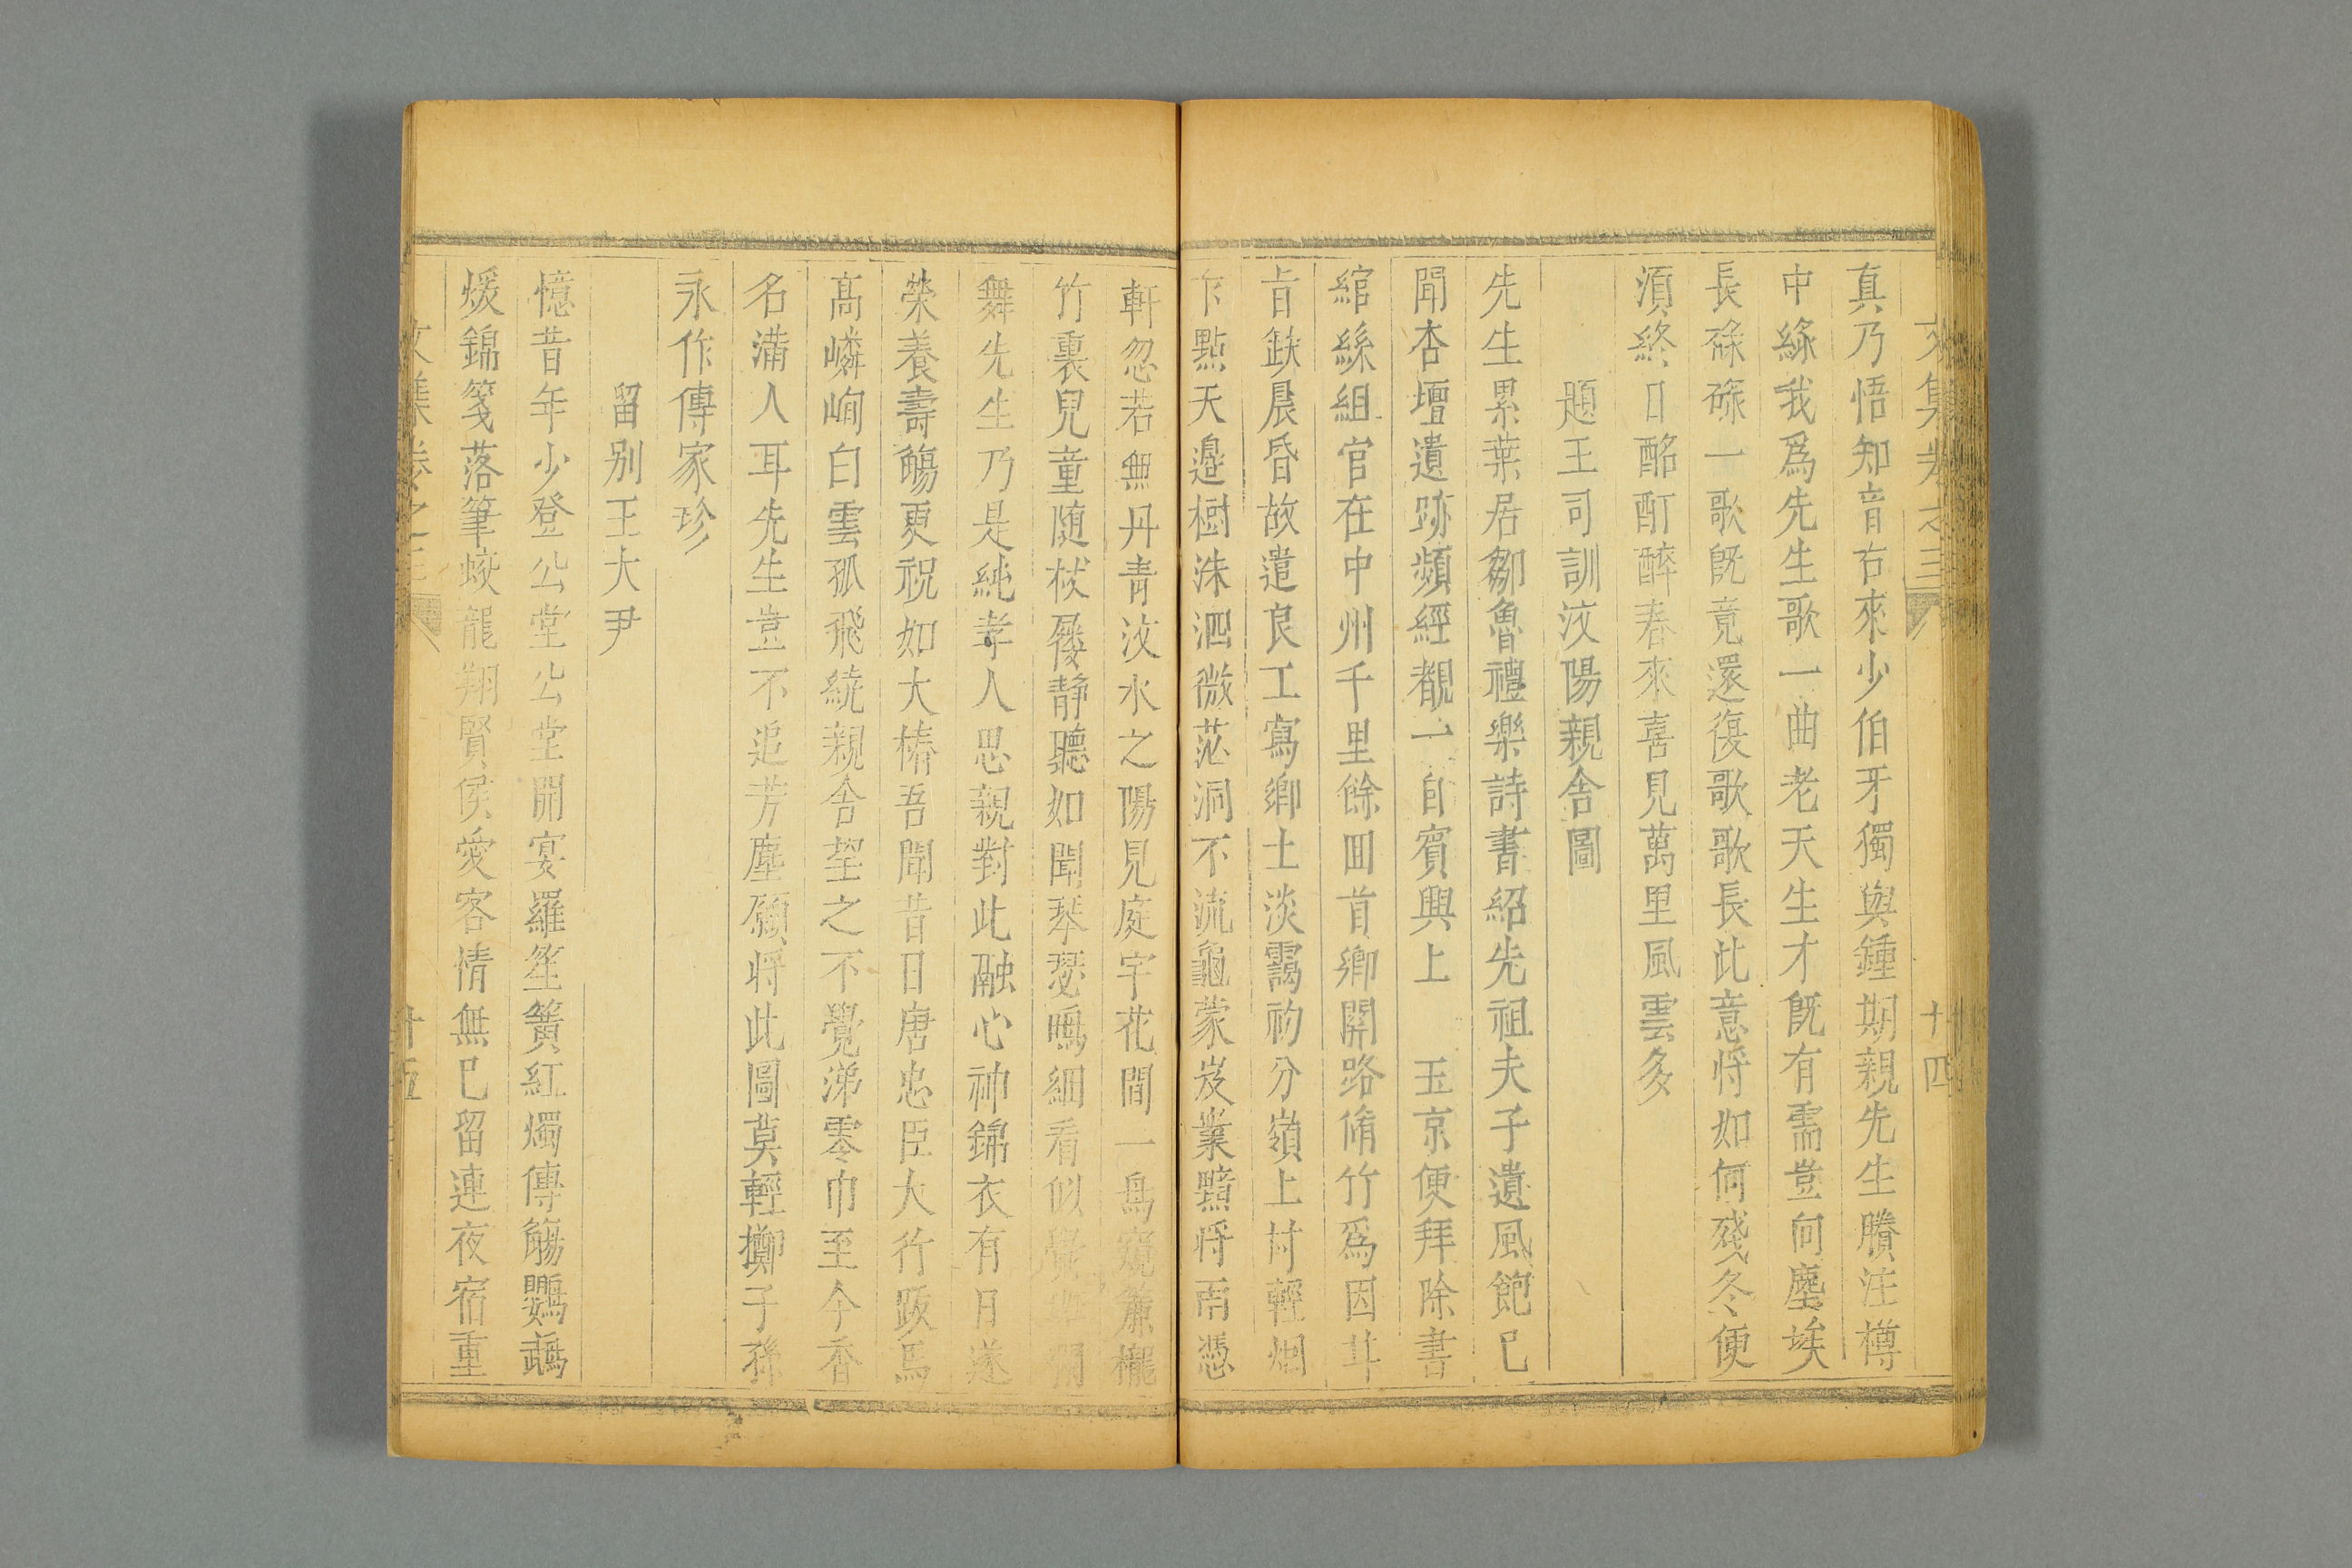 文集卷之三 十四
真乃悟知音右來少伯牙獨與鍾期親先生賸注樽
中綠我爲先生歌一曲老天生才旣有需豈向塵埃
長碌碌一歌旣竟還復歌歌長此意将如何殘冬便
湏終日酩酊醉春來喜見萬里風雲多
題王司訓汶陽親舎圖
先生累葉居鄒魯禮樂詩書紹先祖夫子遺風飽已
聞杏壇遺跡頻經覩一自賓興上 玉京便拜除書
綰絲組官在中州千里餘回首鄉關路脩竹爲因甘
旨缺晨昏故遣良工寫鄉土淡靄初分嶺上村輕烟
乍點天邉樹洙泗微茫洞不流龜蒙岌業黯将雨憑
軒忽若無丹青汶水之陽見庭宇花間一鳥窺簾櫳
竹裏兒童随杖屨靜聽如聞琴瑟鳴細看似覺
舞先生乃是純孝人思親對此融心神錦衣有日遂
榮養壽觴更祝如大椿吾聞昔日唐忠臣大行跋馬
髙嶙峋白雲孤飛繞親舎望之不覺涕零巾至今香
名滿人耳先生豈不追芳塵願将此圖莫輕擲子孫
永作傳家珍
留别王大尹
憶昔年少登公堂公堂開宴羅笙簧紅燭傳觴鸚鵡
煖錦箋落筆蛟龍翔賢侯愛客情無已留連夜宿重
文集卷之三 十五